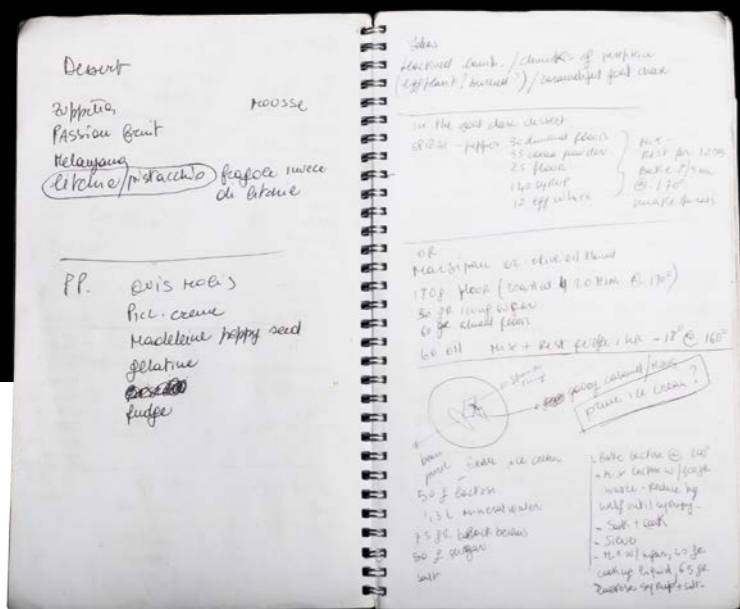 Dessert
Zuppetta
Mousse
PASSion fruit
Melanzana
litchie/pistacchio fragole invece
di litchie
PP. OVIS MOLIS
Picc. creme
Madeleine poppy seed
gelatine
fudge
Ideas
/chunks of
(eggplant? burned?)/caramelised goat cheese
in the goat cheese dessert
SPIRAL - pepper 30 almond floor
35 cocoa powder
25 floor
140 syrup
12 egg white
Mix -
Rest for 12 hrs
Bake 7/8 min
@ 170°
OR
Marzipan or olive oil
180g floor (toasted 20 min @ 170°)
30 gr icing sugar
60 gr almond floor
60 oil Mix + Rest fridge 1 hr - 18° @ 160°
gooey caramel/
prune ice cream?
bean ice cream
50 g lactose
1,3 L mineral water
75 gr black beans
50 g sugar
salt
- Bake lactose @
- Mix lactose w/
water - Reduce by
half until syrupy.
- Soak + cook
- Sieve
- Mix w/ sugar, 20 gr
cooking liquid, 65 gr
lactose syrup + salt.